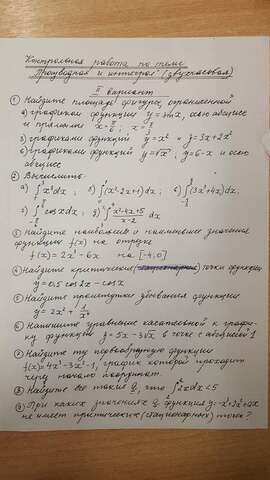 Контрольная работа по теме
Производная и интеграл (двухчасовая)
II вариант
① Найдите площадь фигуры, ограниченной
а) графиком функции y=sinx, осью абсцисс
и прямыми x=π/6, x=π/3
б) графиками функций y=x² и y=3x+2x²
в) графиками функций y=√x, y=6-x и осью
абсцисс
② Вычислить
а) ∫ x³dx ; б) ∫ (x²-2x+1)dx; в) ∫ (3x²+4x)dx;
г) ∫ cosxdx; д) ∫ x²-4x+5/x-2 dx
③ Найдите наибольшее и наименьшее значения
функции f(x) на отрезке
f(x)=2x²-6x на [-4;0]
④ Найдите критические точки функции
y=0,5cos2x-cosx
⑤ Найдите промежутки убывания функции
y=2x²+1/x⁴
⑥ Напишите уравнение касательной к графи-
ку функции y=5x-3√x в точке с абсциссой 1
⑦ Найдите ту первообразную функции
f(x)=4x³-3x²-1, график которой проходит
через начало координат.
⑧ Найдите все такие b, что ∫ 2xdx<5
⑨ При каких значениях a функция y=-x³+3x²+ax
не имеет критических (стационарных) точек?